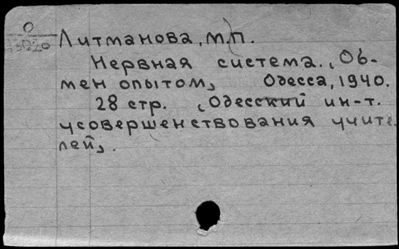 О
Литманова, М.П.
Нервная система. „Об-
мен опытом„ Одесса, 1940.
28 стр. „Одесский ин-т.
усовершенствования учите
лей„.